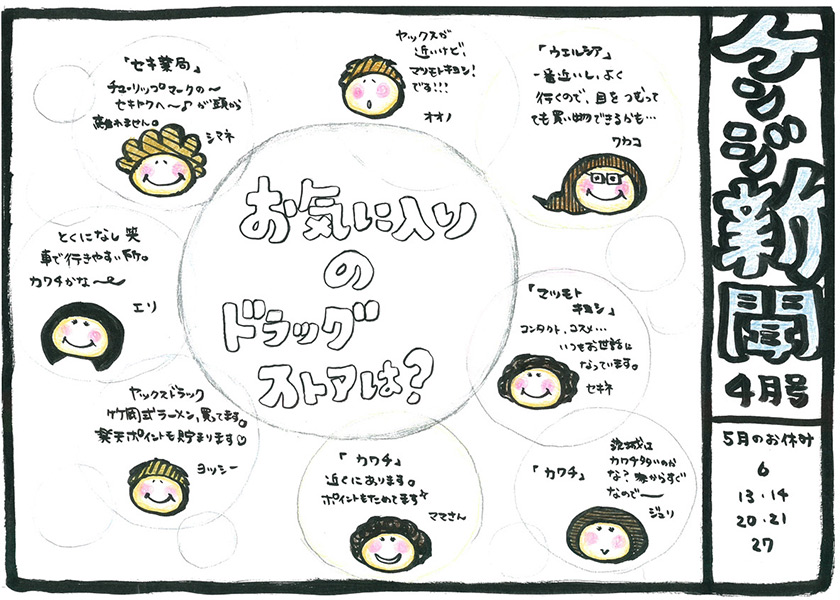 ケンジ新聞
4月号
5月のお休み
6
13・14
20・21
27
お気に入り
の
ドラッグ
ストアは?
「セキ薬局」
チューリップマークの〜
セキトクヘ〜♪が頭から
離れません。
シマネ
ヤックスが
近いけど、
マツモトキヨシ!
です!!!
オオノ
「ウエルシア」
一番近いし、よく
行くので、目をつむって
ても買い物できるかも…
ワカコ
とくになし 笑
車で行きやすい所。
カワチかな〜
エリ
「マツモト
キヨシ」
コンタクト、コスメ…
いつもお世話に
なっています。
セキネ
ヤックスドラック
竹岡式ラーメン、買ってます。
楽天ポイントも貯まります♡
ヨッシー
「カワチ」
近くにあります。
ポイントもためてます
ママさん
「カワチ」
茨城は
カワチタダいのか
な?家からすぐ
なので〜
ジュリ